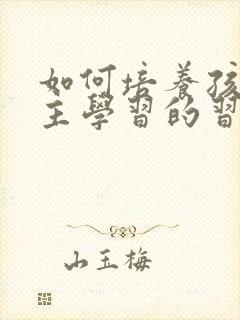 如何培養孩
主學習的習
山玉梅